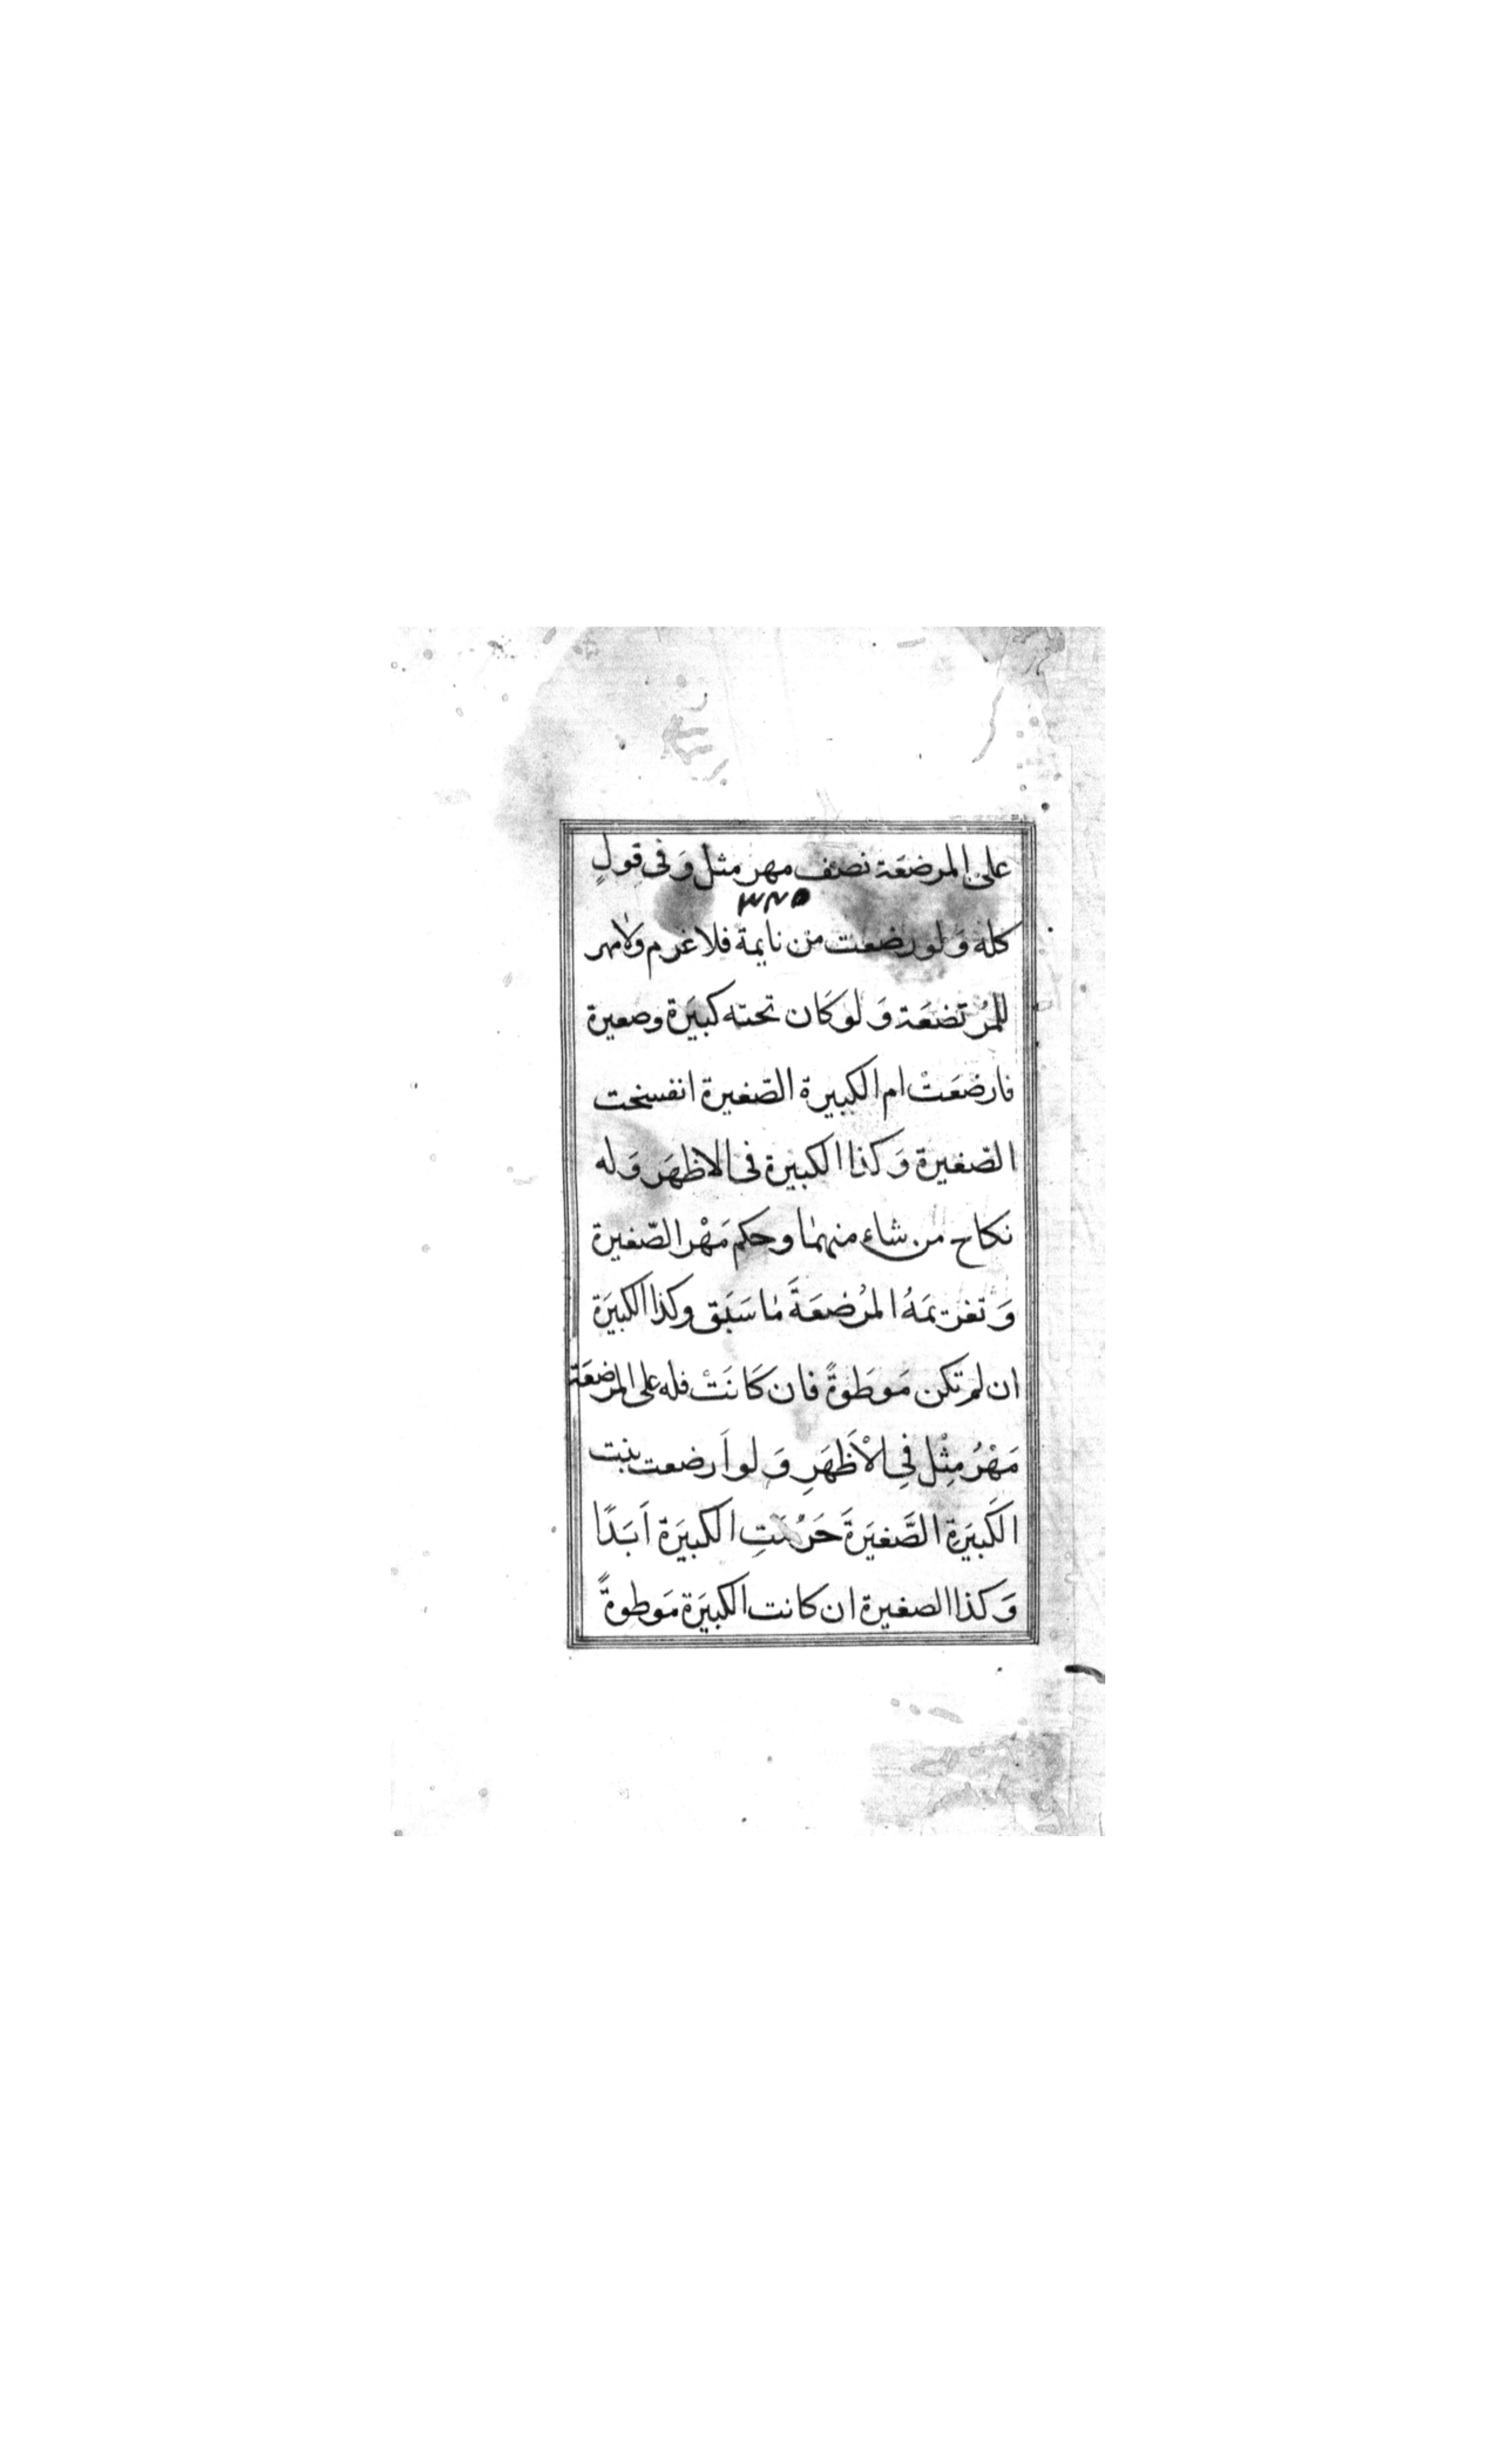 على المرضعَة نصف مهر مثل وَفى قولٍ
٣٨٥
كله وَلو رضعت من نايمة فلا غرم ولا مهر
للمُرتضعَة وَلو كَان تحته كبيَرة وصعيرة
فارضعَتْ ام الكبيرة الصّغيرة انفسخت
الصّغيرة وَكذا الكبيرة فى الاظهَر وَله
نكاح من شاء منهما وحكم مَهْر الصّغيرة
وَتغريمَهُ المرُضعَةَ ما سَبَق وكذا الكبيَرة
ان لم تكن مَوطَوةً فان كَانَتْ فله على المرضعَة
مَهْرُ مِثْل فِي الْأَظَهَرِ وَلو اَرضعت بنت
الكَبيَرةِ الصَّغيَرةَ حَرُمَتِ الكبيَرة اَبَدًا
وَكذا الصغيرة ان كانت الكبيَرة مَوطوةً